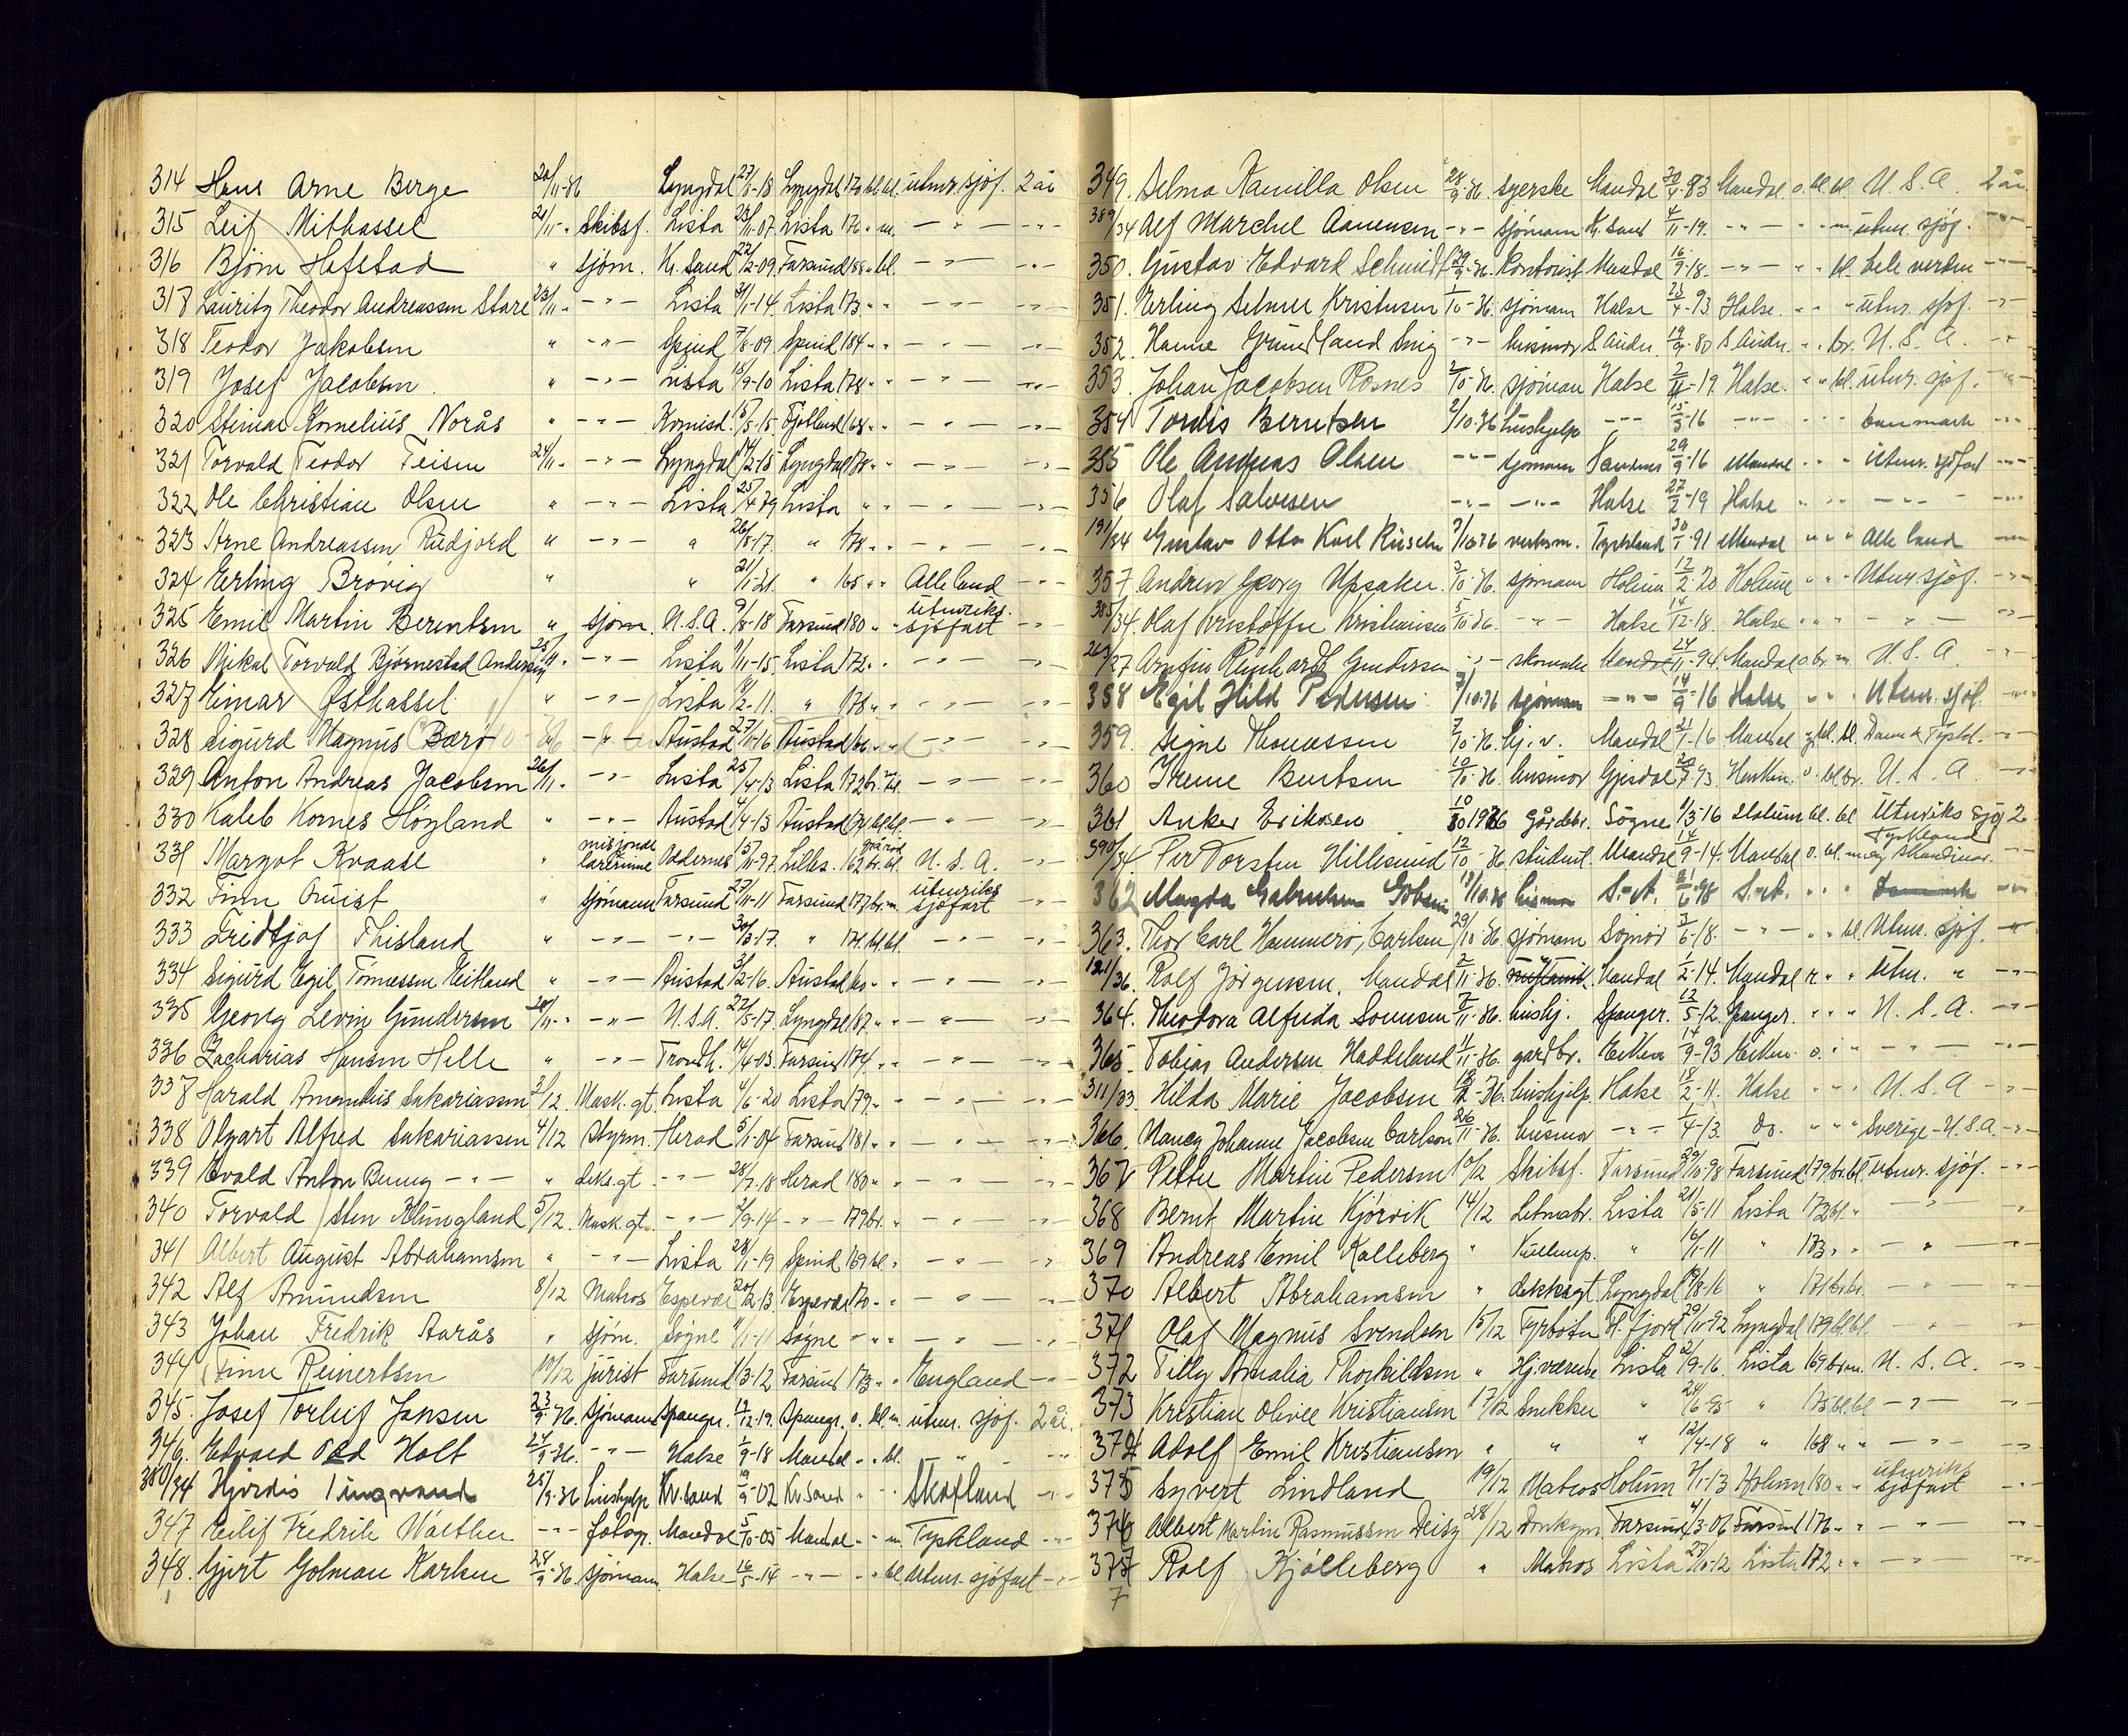 314 Hans Arne Berge 20/11-36 Lyngdal 27/8-18 Lyngdal 170 bl. bl. utenr. sjøf. 2 år
315 Leif Mithassel 21/11-" Skibsf. Lista 23/11-07 Lista 170 " m. — " — -"-
316 Bjørn Hafstad " sjøm. Kr.sand 22/2-09 Farsund 188 " bl. — " — -"-
317 Lauritz Theodor Andreassen Stave 23/11-" -"- Lista 31/1-14 Lista 173 " " — " — -"-
318 Teodor Jakobsen " -"- Spind 7/8-09 Spind 184 " " — " — -"-
319 Josef Jacobsen " -"- Lista 18/9-10 Lista 178 " " — " — -"-
320 Steinar Kornelius Norås " -"- Kvinesd. 15/5-15 Fjotland 168 " " — " — -"-
321 Torvald Teodor Teisen 24/11-" -"- Lyngdal 14/2-15 Lyngdal 178 " " — " — -"-
322 Ole Christian Olsen " -"- Lista 25/4-79 Lista " " — " — -"-
323 Arne Andreassen Rudjord " -"- " 26/8-17 " 178 " " — " — -"-
324 Erling Brøvig " " 21/1-21 " 165 " " Alle land -"-
325 Emil Martin Berentsen " sjøm. U.S.A. 9/8-18 Farsund 180 " " utenriks- sjøfart -"-
326 Mikal Torvald Bjørnestad Andersen 25/11-" -"- Lista 11/11-15 Lista 172 " " — " — -"-
327 Einar Østhassel " -"- Lista 9/2-11 " 178 " " — " — -"-
328 Sigurd Magnus Barø -"- Austad 27/11-16 Austad — " — -"-
329 Anton Andreas Jacobsen 26/11-" -"- Lista 25/4-13 Lista 172 br. — " — -"-
330 Kaleb Kornes Høyland " -"- Austad 4/4-13 Austad 174 bl. bl. — " — -"-
331 Margot Kvaase " misjonde lærerinne Oddernes 15/11-97 Lilles. 162 br. bl. U.S.A. -"-
332 Finn Quist " sjømann Farsund 27/11-11 Farsund 177 br. m. utenriks sjøfart -"-
333 Fridtjof Thisland " -"- -"- 30/3-17 " 174 bl. bl. — " — -"-
334 Sigurd Egil Tønnessen Eitland " -"- Austad 3/2-16 Austad " " — " — -"-
335 Georg Levin Gundersen 28/11-" -"- U.S.A. 22/5-17 Lyngdal 187 " " — " — -"-
336 Zacharias Hansen Helle " -"- Trondh. 14/4-03 Farsund 174 " " — " — -"-
337 Harald Amandus Sakariassen 3/12 Mask.gt. Lista 4/6-20 Lista 179 " " — " — -"-
338 Olgart Alfred Sakariassen 4/12 Styrm. Herad 5/1-04 Farsund 181 " " — " — -"-
339 Evald Anton Benny -"- " deksgt. -"- 28/7-18 Herad 180 " " — " — -"-
340 Torvald Sten Klungland 5/12 Mask.gt. -"- 2/9-14 -"- 179 br. " — " — -"-
341 Albert August Abrahamsen " -"- Lista 28/1-19 Spind 169 bl. " — " — -"-
342 Alf Amundsen 8/12 Matros Espevær 20/2-13 Espevær 170 " " — " — -"-
343 Johan Fredrik Aarås " sjøm. Søgne 11/1-11 Søgne " " " — " — -"-
344 Finn Reinertsen 10/12 jurist Farsund 1/3-12 Farsund 173 " " England -"-
345. Josef Torleif Jansen 23/9-36. sjømann Spanger. 19/12-19. Spangr. o. bl. m. utenr. sjøf. 2 år.
346. Edvard Odd Holt 24/9-36. -"- Halse 1/9-18 Mandal " " bl. " " -"-
380/34 Hjørdis 25/9-36 hushjelp Kr.sand 19/9-02 Kr.sand " " "
347 Eilif Fredrik Walther -"- fotogr. Mandal 5/10-05 Mandal " " m. Tyskland -"-
348. Gjert Golman Karlsen 28/9-36. sjømann Halse 16/5-14 -"- " " bl. Utenr. sjøfart -"-
349. Selma Kamilla Olsen 28/9-36. syerske Mandal 30/4-83 Mandal o. bl. bl. U.S.A. 2 år.
389/34 Alf Marchel Aanensen -"- sjømann Kr.sand 4/11-19. -"- " " m. utenr. sjøf. -"-
350. Gustav Edvard Schmidt 29/9-36. Kontorist Mandal 16/9-18. -"- " " bl. hele verden -"-
351. Erling Selmer Kristensen 1/10-36. sjømann Halse 23/4-93 Halse. " " " utenr. sjøf. -"-
352. Hanne Grundland Svig -"- husmor S.Audn. 19/9-80 S.Audn. " " br. U.S.A. -"-
353. Johan Jacobsen Rosnes 2/10-36. sjømann Halse 2/11-19 Halse. " " bl. utenr. sjøf. -"-
354 Tordis Berntsen 2/10-36 hushjelp -"- 15/3-16 -"- " " " Danmark -"-
355 Ole Andreas Olsen -"- sjømann 29/9-16 Mandal " " " Utenr. sjøfart -"-
356 Olaf Salvesen -"- -"- Halse 27/2-19 Halse " " " -"- -"-
191/34 Gustav Otto Karl 3/10 36 verksm. Tyskland 30/1-91 Mandal " " " Alle land -"-
357 Andrew Georg Upsaker 3/10-36. sjømann Holum 12/2-20 Holum " " " Utenr. sjøf. -"-
385/34. Olaf Kristoffer Kristiansen 5/10-36. -"- Halse 14/12-18. Halse " " " -"- -"-
263/27 Arnfin Reinhardt Gundersen -"- skomaker Mandal 24/11-94. Mandal o. br. m. U.S.A. -"-
358 Egil Hild Pedersen 7/10-36 sjømann -"- 14/9-16 Halse " " " Utenr. sjøf. -"-
359. Signe Thomassen 7/10-36. hj.v. Mandal 21/1-16 Mandal bl. bl. Danm. & Tyskl. -"-
360 Irene Berntsen 10/10-36. husmor Gjesdal 20/7-93 o. bl. br. U.S.A. -"-
361 Anker Eriksen 10/10 1936 gårdbr. Søgne 1/3-16 Holum bl. bl Utenriks sjøf 2
390/34. Per Torsten Hillesund 12/10-36 student. Mandal 14/9-14. Mandal o. bl. m. Tyskland og Skandinav. -"-
362 Magda 13/10-36 husmor S.-A. 21/6-98 S.-A. " " " Danmark -"-
363. Thor Carl Hammerø, Carlsen 29/10-36. sjømann 3/6-18. -"- " " bl. Utenr. sjøf. -"-
121/36. Rolf Jørgensen, Mandal 2/11-36. Mandal 1/2-14. Mandal r. " " Utenr. " -"-
364. Theodora Alfrida Sørensen 7/11-36. hushj. Spanger. 12/5-12 Spanger. " " " U.S.A. -"-
365. Tobias Andersen Haddeland 11/11-36. gårdbr. 14/9-93 o. " " -"- -"-
311/33. Hilda Marie Jacobsen 36. hushjelp. Halse 18/2-11. Halse " " " U.S.A. -"-
366. Nancy Johanne Jacobsen Carlson 26/11-36. husmor -"- 1/4-13. Do. " " " Sverige-U.S.A. -"-
367 Petter Martin Pedersen 10/12 Skibsf. Farsund 29/10-98 Farsund 179 br. bl. utenr. sjøf. -"-
368 Bernt Martin Kjørvik 14/12 Letmatr. Lista 21/5-11 Lista 173 bl. " — " — -"-
369 Andreas Emil Kalleberg " Kullemp. " 16/1-11 " 183 " " — " — -"-
370 Albert Abrahamsen " dekksgt. Lyngdal 19/8-16 " 171 br. br. — " — -"-
371 Olaf Magnus Svendsen 15/12 Fyrbøter H.fjord 29/11-92 Lyngdal 189 bl. bl. — " — -"-
372 Tilly Amalia Thorkildsen " Hj.værende Lista 2/9-16. Lista 169 br. m. U.S.A. -"-
373 Kristian Oliver Kristiansen 17/12 Snekker " 24/6-95 " 175 bl. bl — " — -"-
374 Adolf Emil Kristiansen " " " 12/4-18 " 168 " " — " — -"-
375 Syvert Lindland 19/12 Matros Holum 7/1-13 Holum 180 " " utenriks sjøfart -"-
376 Albert Martin Rasmussen Deisz 28/12 Donkym. Farsund 4/3-06 Farsund 176 " " — " — -"-
377 Rolf Kjølleberg " Matros Lista 27/10-12 Lista 172 " " — " — -"-
7